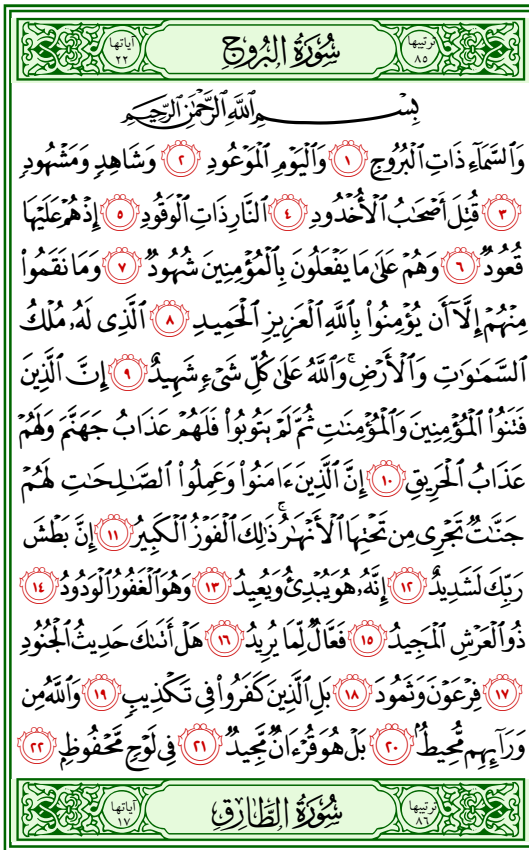 ترتيبها ٨٥ سُورَةُ البُرُوجِ آياتها ٢٢
بِسْمِ اللَّهِ الرَّحْمَٰنِ الرَّحِيمِ
وَالسَّمَآءِ ذَاتِ الْبُرُوجِ ١ وَالْيَوْمِ الْمَوْعُودِ ٢ وَشَاهِدٍ وَمَشْهُودٍ
٣ قُتِلَ أَصْحَٰبُ الْأُخْدُودِ ٤ النَّارِ ذَاتِ الْوَقُودِ ٥ إِذْ هُمْ عَلَيْهَا
قُعُودٌ ٦ وَهُمْ عَلَىٰ مَا يَفْعَلُونَ بِالْمُؤْمِنِينَ شُهُودٌ ٧ وَمَا نَقَمُوا۟
مِنْهُمْ إِلَّآ أَن يُؤْمِنُوا۟ بِاللَّهِ الْعَزِيزِ الْحَمِيدِ ٨ الَّذِى لَهُۥ مُلْكُ
السَّمَٰوَٰتِ وَالْأَرْضِ ۚ وَاللَّهُ عَلَىٰ كُلِّ شَىْءٍ شَهِيدٌ ٩ إِنَّ الَّذِينَ
فَتَنُوا۟ الْمُؤْمِنِينَ وَالْمُؤْمِنَٰتِ ثُمَّ لَمْ يَتُوبُوا۟ فَلَهُمْ عَذَابُ جَهَنَّمَ وَلَهُمْ
عَذَابُ الْحَرِيقِ ١٠ إِنَّ الَّذِينَ ءَامَنُوا۟ وَعَمِلُوا۟ الصَّٰلِحَٰتِ لَهُمْ
جَنَّٰتٌ تَجْرِى مِن تَحْتِهَا الْأَنْهَٰرُ ۚ ذَٰلِكَ الْفَوْزُ الْكَبِيرُ ١١ إِنَّ بَطْشَ
رَبِّكَ لَشَدِيدٌ ١٢ إِنَّهُۥ هُوَ يُبْدِئُ وَيُعِيدُ ١٣ وَهُوَ الْغَفُورُ الْوَدُودُ ١٤
ذُو الْعَرْشِ الْمَجِيدُ ١٥ فَعَّالٌ لِّمَا يُرِيدُ ١٦ هَلْ أَتَىٰكَ حَدِيثُ الْجُنُودِ
١٧ فِرْعَوْنَ وَثَمُودَ ١٨ بَلِ الَّذِينَ كَفَرُوا۟ فِى تَكْذِيبٍ ١٩ وَاللَّهُ مِن
وَرَآئِهِم مُّحِيطٌۢ ٢٠ بَلْ هُوَ قُرْءَانٌ مَّجِيدٌ ٢١ فِى لَوْحٍ مَّحْفُوظٍۭ ٢٢
ترتيبها ٨٦ سُورَةُ الطَّارِقِ آياتها ١٧